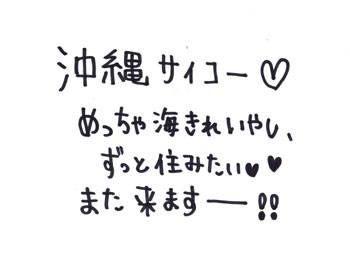 沖縄サイコー♡
めっちゃ海きれいやし、
ずっと住みたい♥♥
また来ますー!!